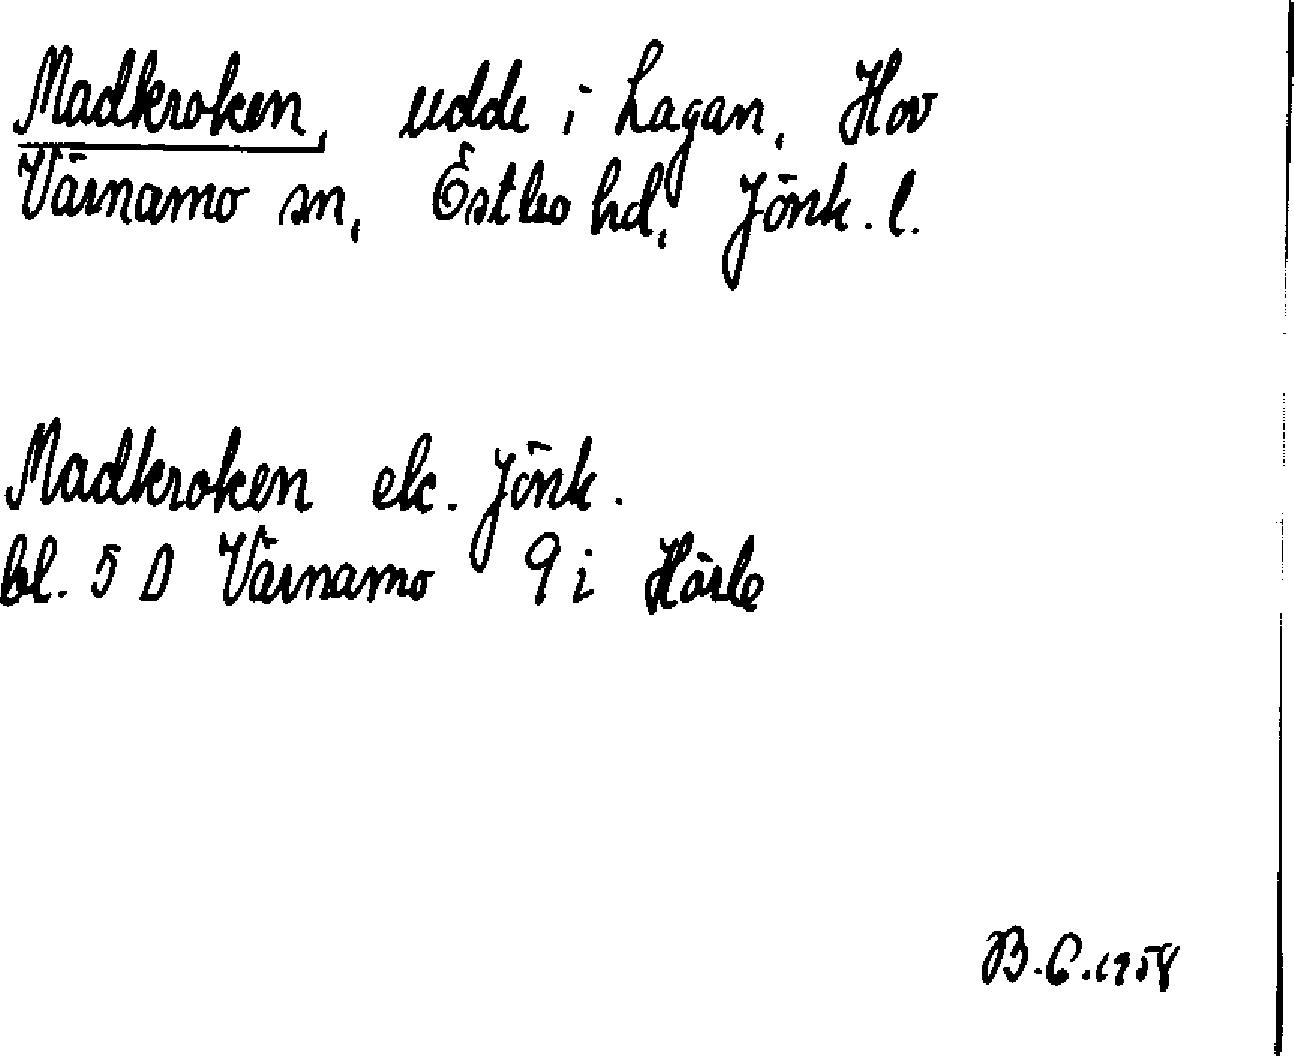 Madkroken, udde i Lagan, Hov
Värnamo sn, Östbo hd, Jönk. l.
Madkroken ek. Jönk.
bl. 5 D Värnamo 9 i Hörle
B. C. 1958